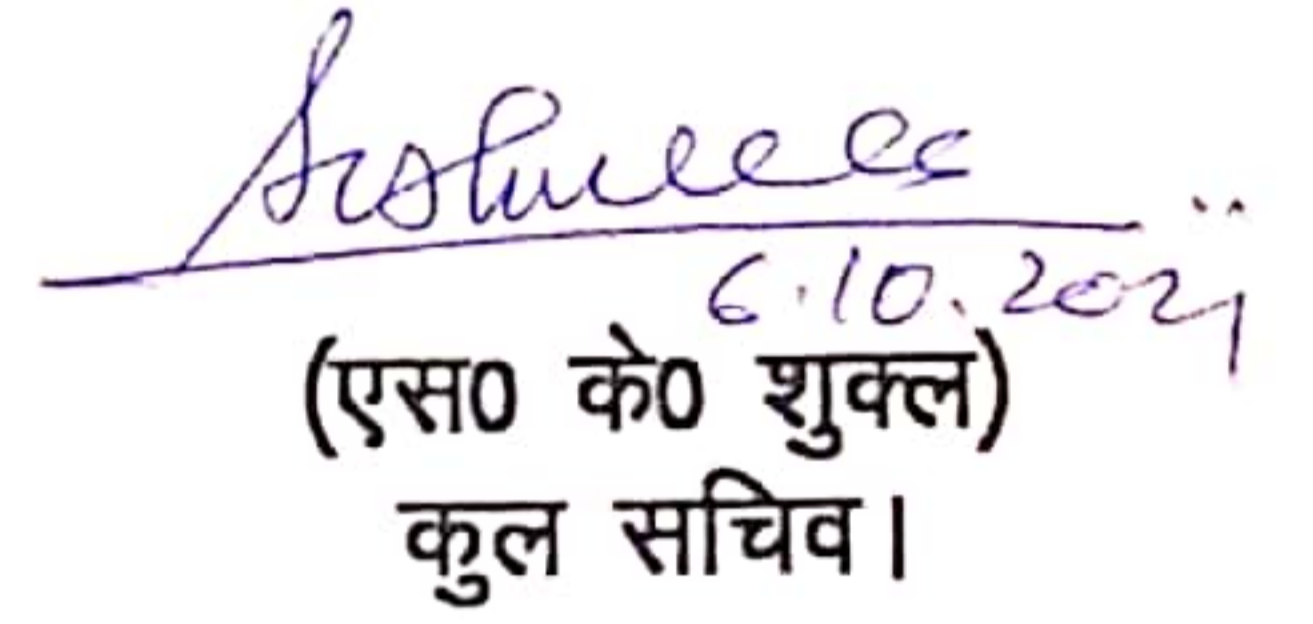 6.10.2021
(एस0 के0 शुक्ल)
कुल सचिव।